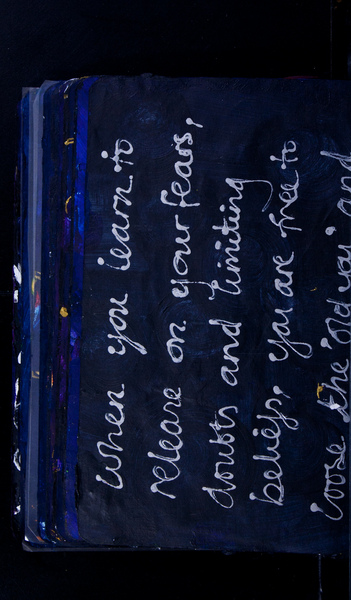 When you learn to
release on your fears,
doubts and limiting
beliefs, you are free to
loose the old you, and